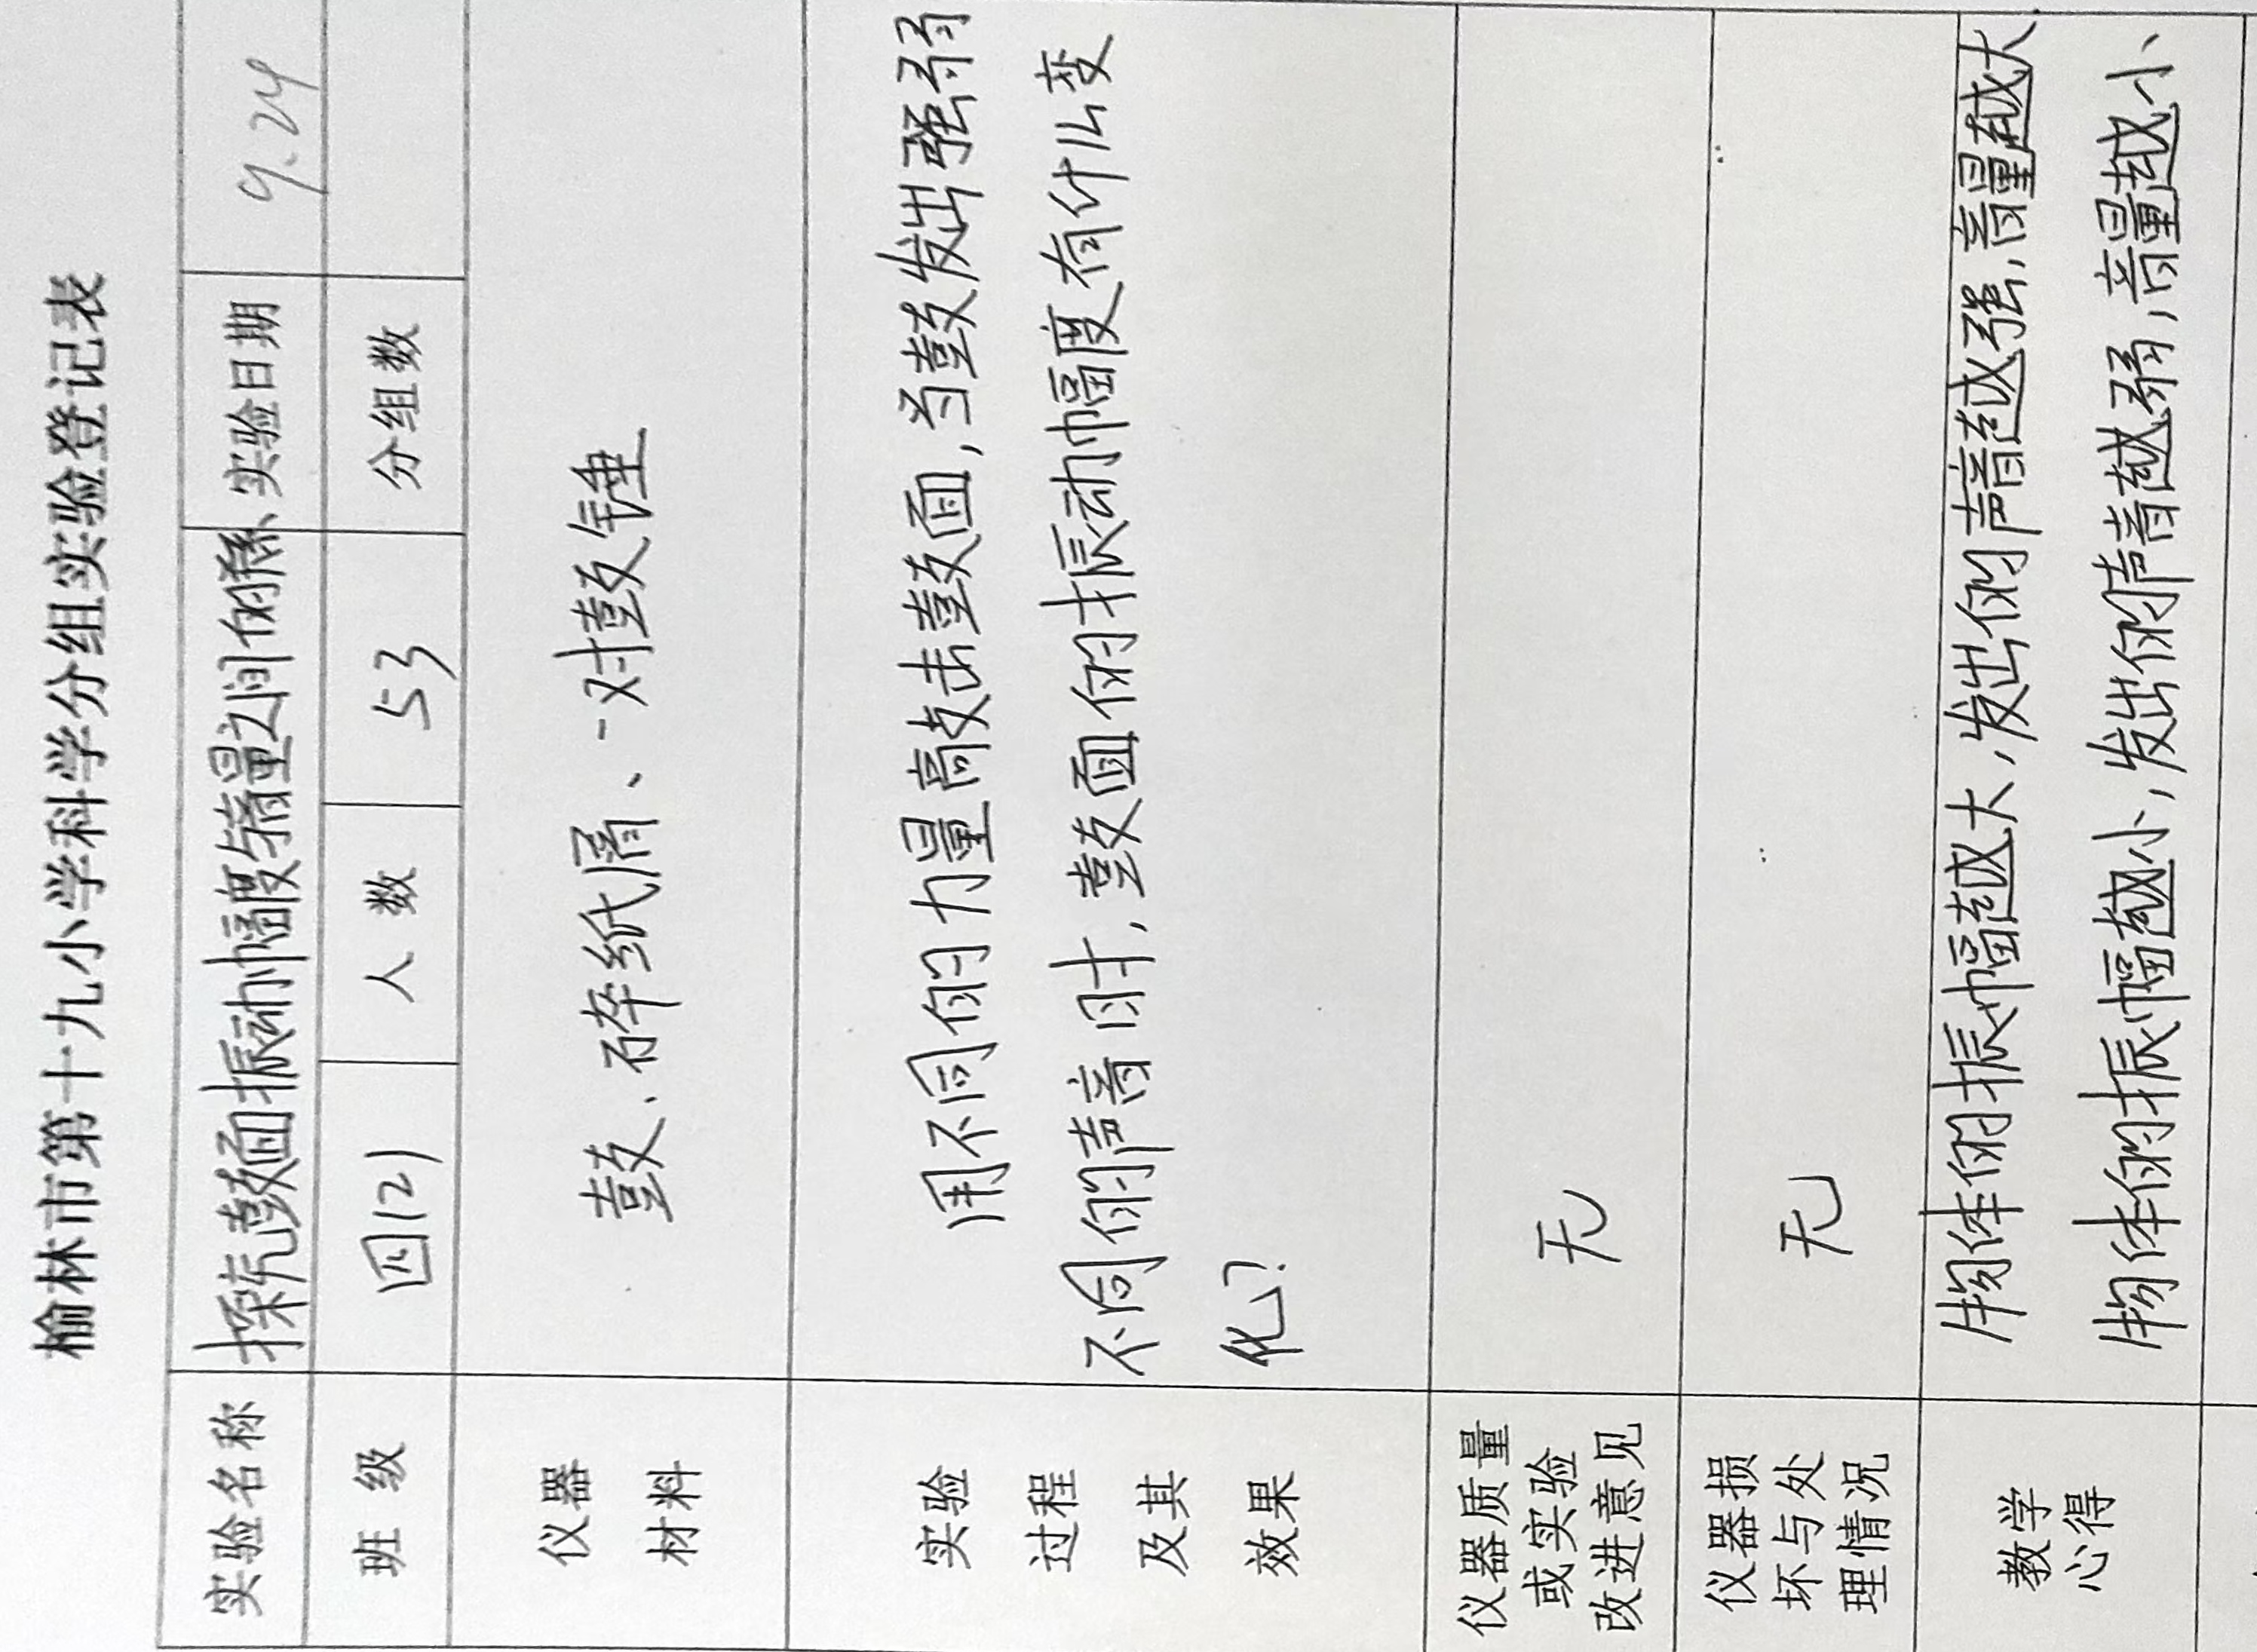 榆林市第十九小学科学分组实验登记表
实验名称 探究鼓面振动幅度与音量之间的关系、 实验日期 9.24
班级 四(2) 人数 53 分组数
仪器
材料
鼓、碎纸屑、一对鼓锤
实验
过程
及其
效果
用不同的力量敲击鼓面,当鼓发出强弱
不同的声音时,鼓面的振动幅度有什么变
化?
仪器质量
或实验
改进意见
无
仪器损
坏与处
理情况
无
教学
心得
物体的振幅越大,发出的声音越强,音量越大、
物体的振幅越小,发出的声音越弱,音量越小、